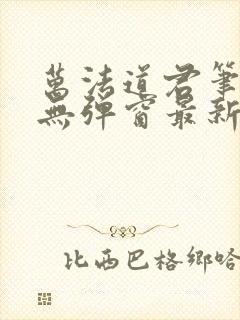 萬法道君筆
無彈窗最新
比西巴格鄉哈